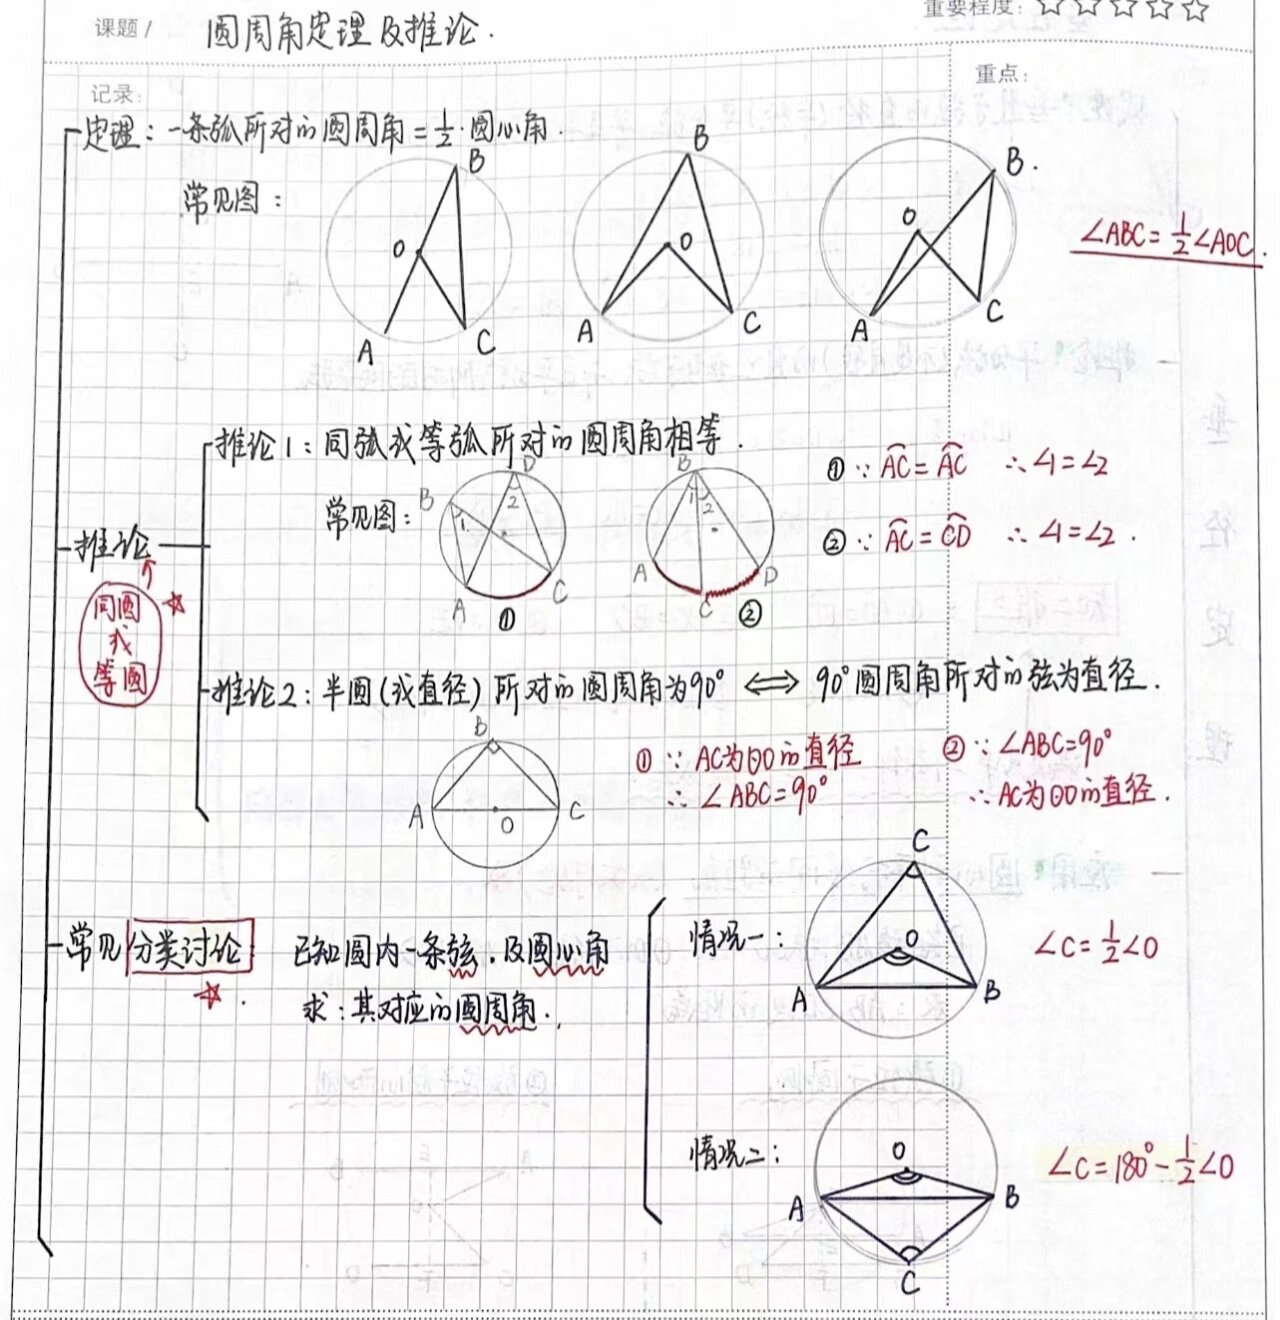 课题/ 圆周角定理及推论.
重要程度: ☆☆☆☆☆
记录:
重点:
定理: 一条弧所对的圆周角=½·圆心角.
常见图:
B
O
A
C
B
O
A
C
B.
O
A
C
∠ABC=½∠AOC.
推论
同圆
或
等圆
推论1: 同弧或等弧所对的圆周角相等.
常见图:
D
B
1
2
A
C
①
B
1
2
A
C
D
②
① ∵ AC⌢=AC⌢ ∴∠1=∠2
② ∵ AC⌢=CD⌢ ∴∠1=∠2.
推论2: 半圆(或直径)所对的圆周角为90° ⟺ 90°圆周角所对的弦为直径.
B
A
O
C
① ∵ AC为⊙O的直径
∴ ∠ABC=90°
② ∵ ∠ABC=90°
∴ AC为⊙O的直径.
常见分类讨论: 已知圆内一条弦.及圆心角
求: 其对应的圆周角.
情况一:
C
O
A
B
∠C=½∠O
情况二:
O
A
B
C
∠C=180°-½∠O